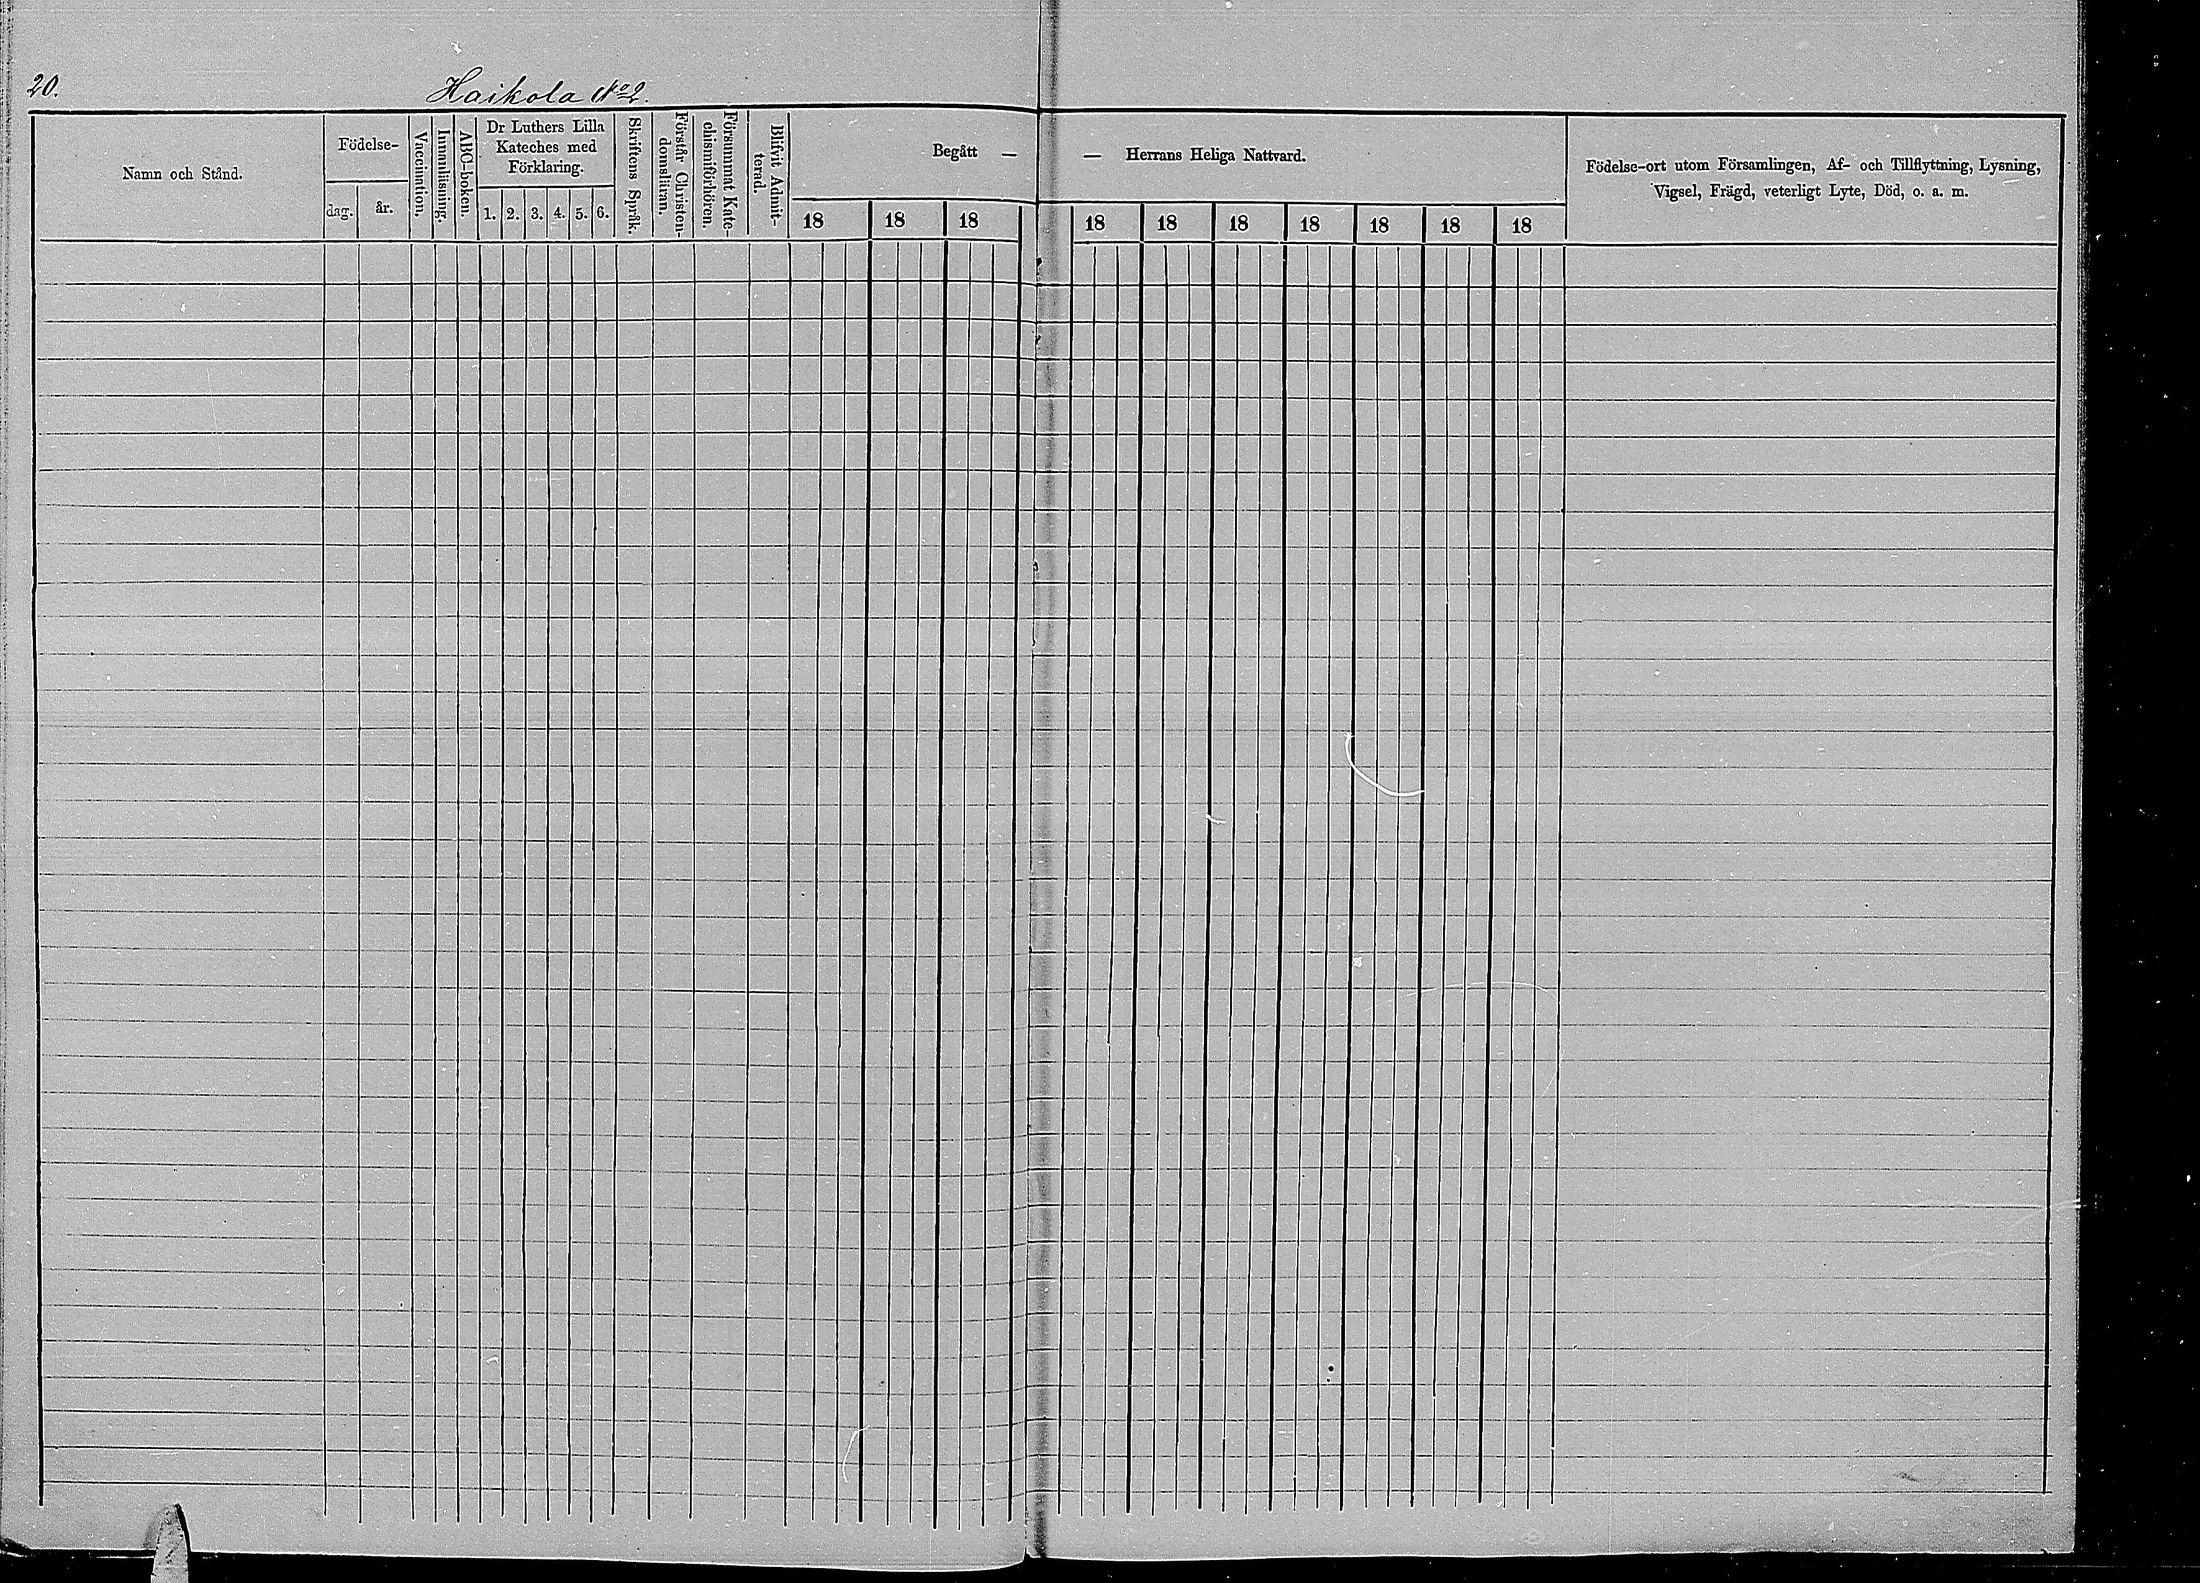 20.
Haikola No 2.
Namn och Stånd.
Födelse-
dag.
år.
Vaccination.
Innanläsning.
ABC-boken.
Dr Luthers Lilla
Kateches med
Förklaring.
1. 2. 3. 4. 5. 6.
Skriftens Språk.
Förstår Christen-
domsläran.
Försummat Kate-
chismiförhören.
Blifvit Admit-
terad.
Begått —
18 18 18
— Herrans Heliga Nattvard.
18 18 18 18 18 18 18
Födelse-ort utom Församlingen, Af- och Tillflyttning, Lysning,
Vigsel, Frägd, veterligt Lyte, Död, o. a. m.